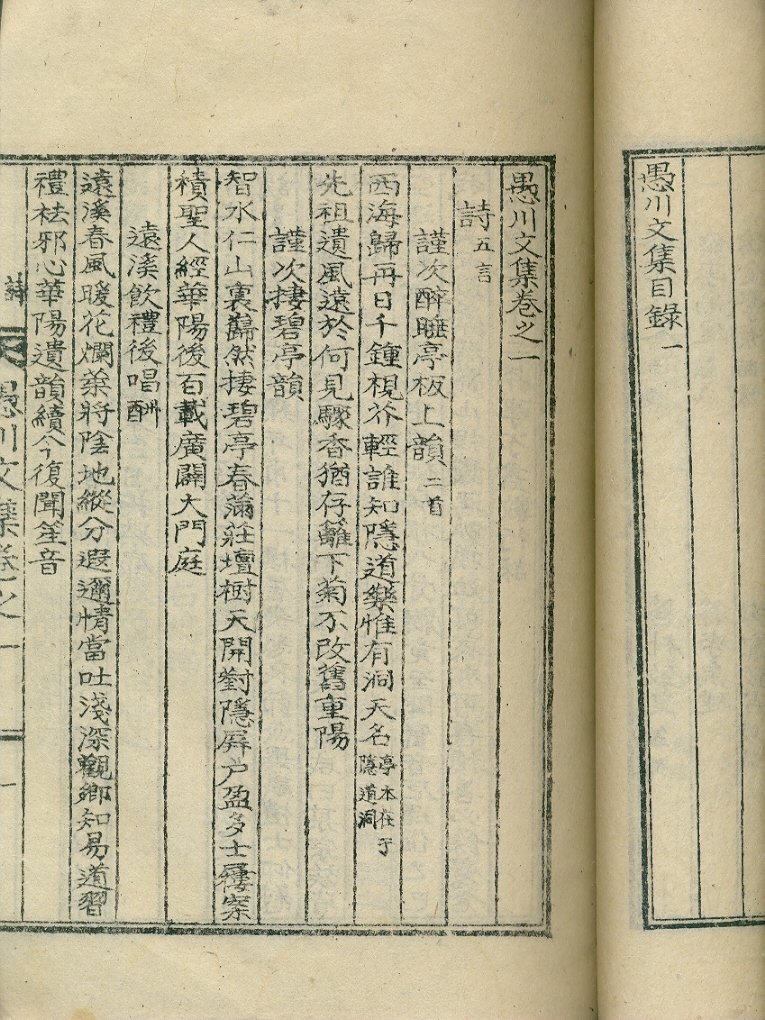 愚川文集目錄 一
愚川文集卷之一
詩 五言
謹次醉睡亭板上韻 二首
西海歸再日千鍾視芥輕誰知隱道樂惟有洞天名 亭本在于隱道洞
先祖遺風遠於何見驟香猶存籬下菊不改舊重陽
謹次捿碧亭韻
智水仁山裏巋然捿碧亭春滿莊壇樹天開對隱屛戶盈多士屨案
積聖人經華陽後百載廣闢大門庭
遠溪飮禮後唱酬
遠溪春風暖花爛藥將陰地縱分遐邇情當吐淺深觀鄕知易道習
禮祛邪心華陽遺韻續今復聞笙音
詩
愚川文集卷之一
一